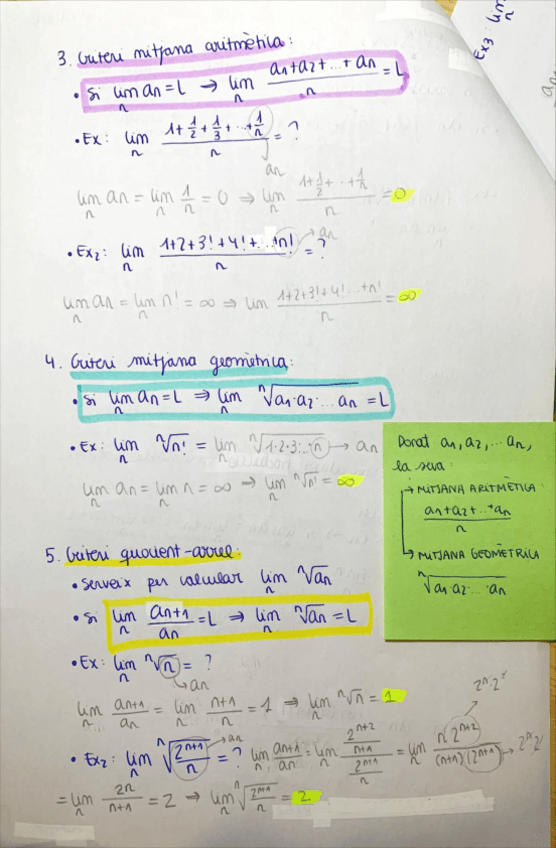 3. Criteri mitjana aritmètica:
• Si lim_n an = L → lim_n (a1+a2+...+an)/n = L
• Ex: lim_n (1+1/2+1/3+...+1/n)/n = ?
an
lim_n an = lim_n 1/n = 0 ⇒ lim_n (1+1/2+...+1/n)/n = 0
• Ex2: lim_n (1+2+3!+4!+...+n!)/n = ?
an
lim_n an = lim_n n! = ∞ ⇒ lim (1+2+3!+4!...+n!)/n = ∞
4. Criteri mitjana geomètrica:
• Si lim_n an = L ⇒ lim_n ⁿ√(a1·a2·...an) = L
• Ex: lim_n ⁿ√n! = lim_n ⁿ√(1·2·3...·n) → an
lim_n an = lim_n n = ∞ → lim_n ⁿ√n! = ∞
Donat a1, a2, ... an,
la seva:
→ MITJANA ARITMÈTICA
(a1+a2+...+an)/n
→ MITJANA GEOMÈTRICA
ⁿ√(a1·a2·...·an)
5. Criteri quocient-arrel:
• Serveix per calcular lim_n ⁿ√an
• Si lim_n (an+1)/an = L ⇒ lim_n ⁿ√an = L
• Ex: lim_n ⁿ√n = ?
an
lim_n (an+1)/an = lim_n (n+1)/n = 1 ⇒ lim_n ⁿ√n = 1
• Ex2: lim_n ⁿ√(2ⁿ⁺¹/n) = ? lim_n (an+1)/an = lim_n (2ⁿ⁺²/(n+1))/(2ⁿ⁺¹/n) = lim_n (n·2ⁿ⁺²)/((n+1)(2ⁿ⁺¹))
an
= lim_n 2n/(n+1) = 2 ⇒ lim_n ⁿ√(2ⁿ⁺¹/n) = 2
Ex3: lim_n